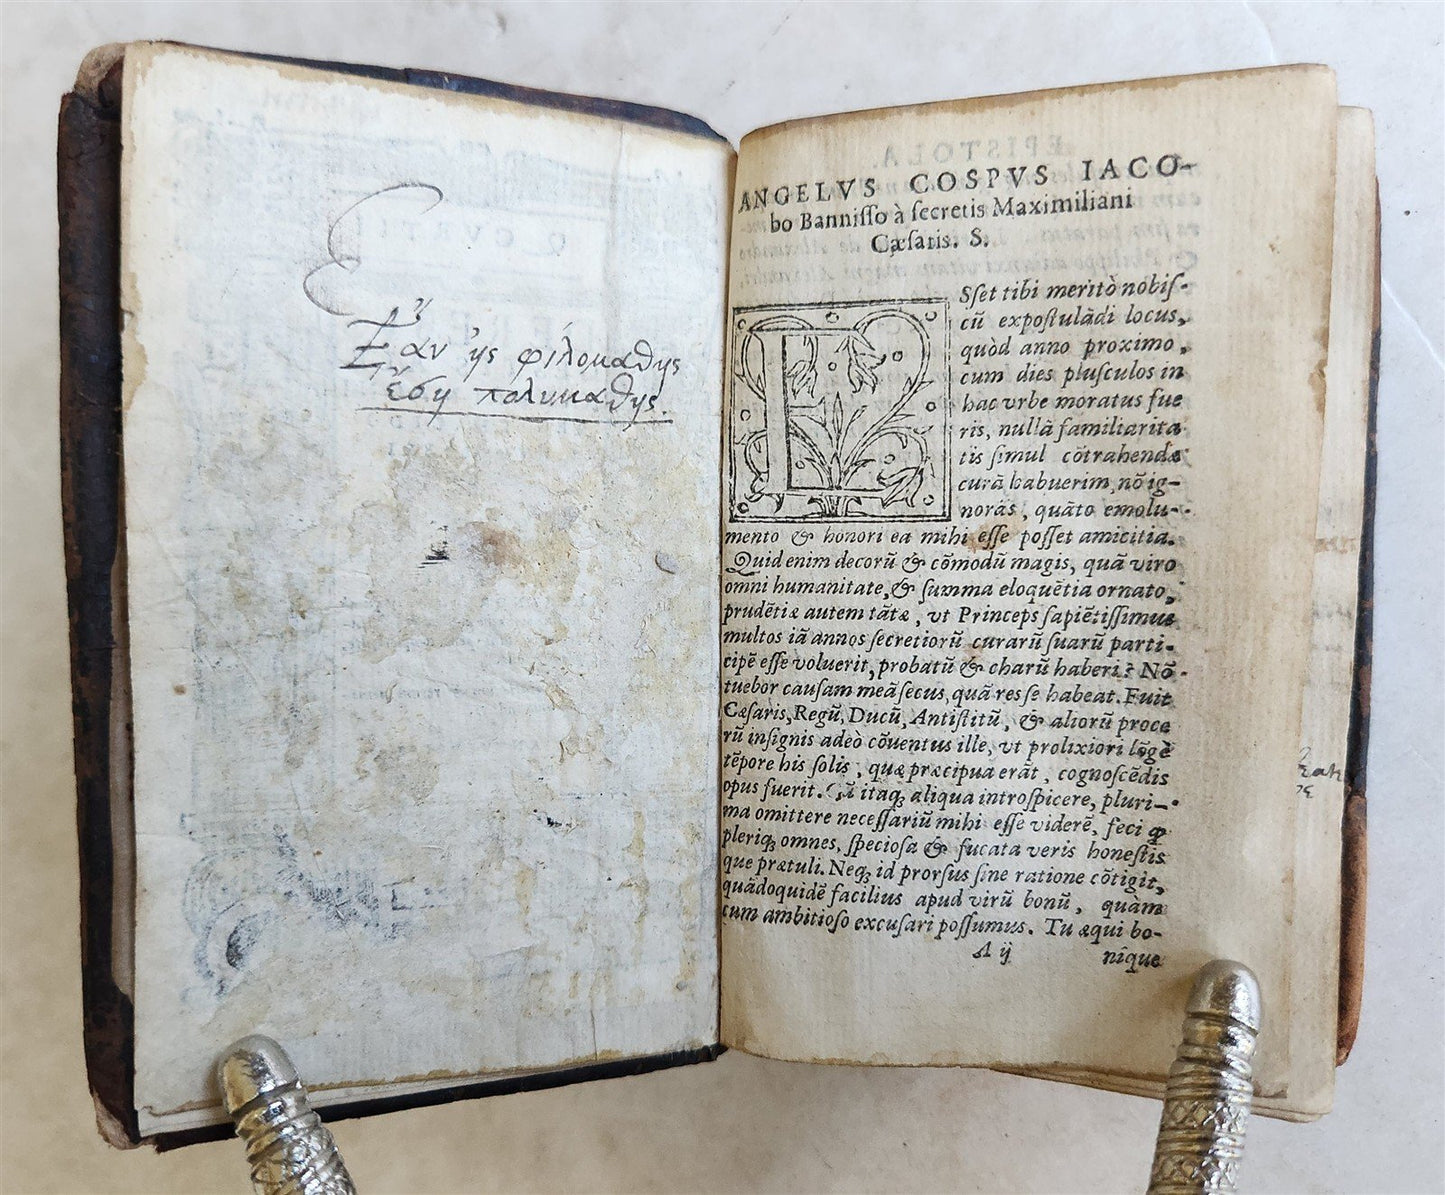 Ἐὰν ᾖς φιλομαθὴς
ἔσῃ πολυμαθής.
ANGELVS COSPVS IACO-
bo Banniſſo à ſecretis Maximiliani
Cæſaris. S.
ESſet tibi meritò nobiſ-
cũ expoſtulãdi locus,
quòd anno proximo,
cum dies pluſculos in
hac vrbe moratus fue
ris, nullã familiarita
tis ſimul cõtrahendæ
curã habuerim, nõ ig-
noras, quãto emolu-
mento & honori ea mihi eſſe poſſet amicitia.
Quid enim decorũ & cõmodũ magis, quã viro
omni humanitate, & ſumma eloquẽtia ornato,
prudẽtiæ autem tãtæ, vt Princeps ſapiẽtiſſimus
multos iã annos ſecretiorũ curarũ ſuarũ parti-
cipẽ eſſe voluerit, probatũ & charũ haberi? Nõ
tuebor cauſam meã ſecus, quã res ſe habeat. Fuit
Cæſaris, Regũ, Ducũ, Antiſtitũ, & aliorũ proce
rũ inſignis adeò cõuentus ille, vt prolixiori lõgè
tẽpore his ſolis, quæ præcipua erãt, cognoſcẽdis
opus fuerit. itaq; aliqua introſpicere, pluri-
ma omittere neceſſariũ mihi eſſe viderẽ, feci ꝙ
pleriq; omnes, ſpecioſa & fucata veris honeſtis
que prætuli. Neq; id prorſus ſine ratione cõtigit,
quãdoquidẽ facilius apud virũ bonũ, quàm
cum ambitioſo excuſari poſſumus. Tu æqui bo-
A ij nique